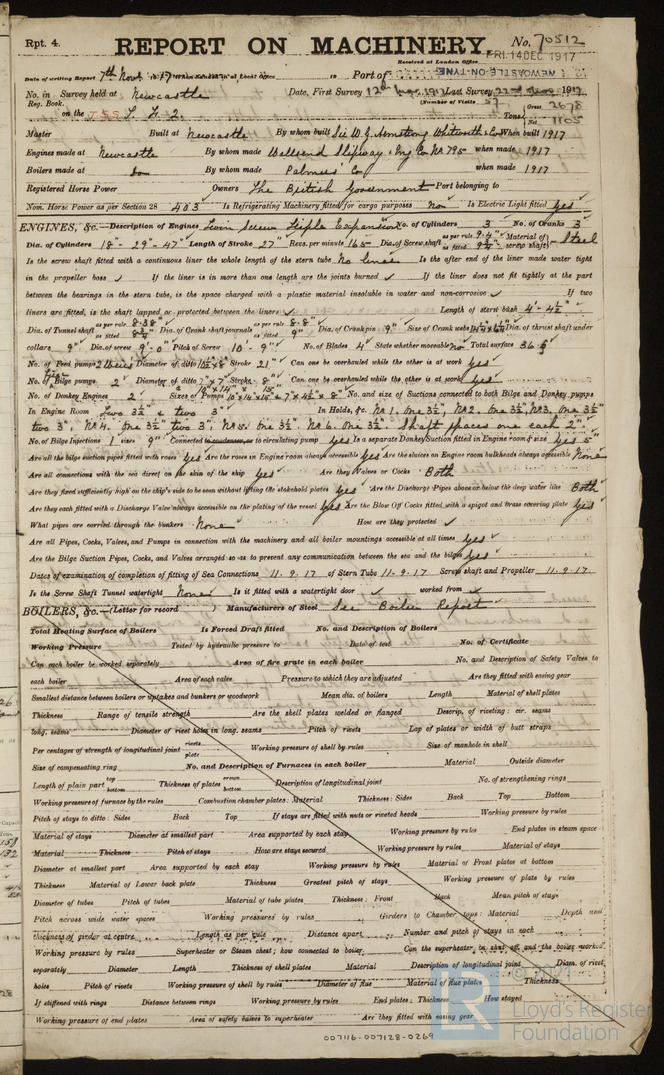 Rpt. 4. REPORT ON MACHINERY. No. 70512
Received at London Office FRI. 14 DEC. 1917
Date of writing Report 7th Novr 1917 When handed in at Local Office 19 Port of NEWCASTLE-ON-TYNE
No. in Survey held at Newcastle Date, First Survey Last Survey 1917
Reg. Book. (Number of Visits 57
on the Tons Gross 2678 Net 1105
Master Built at Newcastle By whom built Sir W. G. Armstrong Whitworth & Co When built 1917
Engines made at Newcastle By whom made Wallsend Slipway & Eng. Co No 795 when made 1917
Boilers made at do By whom made Palmers' Co when made 1917
Registered Horse Power Owners The British Government Port belonging to
Nom. Horse Power as per Section 28 403 Is Refrigerating Machinery fitted for cargo purposes No Is Electric Light fitted Yes
ENGINES, &c.—Description of Engines Twin Screw Triple Expansion No. of Cylinders 3 No. of Cranks 3
Dia. of Cylinders 18"- 29"- 47" Length of Stroke 27" Revs. per minute 165 Dia. of Screw shaft as per rule 9.4" as fitted Material of screw shaft Steel
Is the screw shaft fitted with a continuous liner the whole length of the stern tube No liner Is the after end of the liner made water tight
in the propeller boss If the liner is in more than one length are the joints burned If the liner does not fit tightly at the part
between the bearings in the stern tube, is the space charged with a plastic material insoluble in water and non-corrosive If two
liners are fitted, is the shaft lapped or protected between the liners Length of stern bush 4'- 4½"
Dia. of Tunnel shaft as per rule 8.38" as fitted Dia. of Crank shaft journals as per rule 8.8" as fitted 9" Dia. of Crank pin 9" Size of Crank webs Dia. of thrust shaft under
collars 9" Dia. of screw 9'- 0" Pitch of Screw 10'- 9" No. of Blades 4 State whether moveable No Total surface 36
No. of Feed pumps Diameter of ditto Stroke 21" Can one be overhauled while the other is at work Yes
No. of Bilge pumps 2 Diameter of ditto Stroke Can one be overhauled while the other is at work Yes
No. of Donkey Engines 2 Sizes of Pumps No. and size of Suctions connected to both Bilge and Donkey pumps
In Engine Room Two 3½" & two 3" In Holds, &c. No 1. One 3½", No 2. One 3½", No 3. One 3½"
two 3", No 4. One 3½" two 3". No 5. One 3½" No 6. One 3½". Shaft spaces one each 2"
No. of Bilge Injections 1 sizes 9" Connected to condenser, or to circulating pump Yes Is a separate Donkey Suction fitted in Engine room & size Yes 5"
Are all the bilge suction pipes fitted with roses Yes Are the roses in Engine room always accessible Yes Are the sluices on Engine room bulkheads always accessible None
Are all connections with the sea direct on the skin of the ship Yes Are they Valves or Cocks Both
Are they fixed sufficiently high on the ship's side to be seen without lifting the stokehold plates Yes Are the Discharge Pipes above or below the deep water line Both
Are they each fitted with a Discharge Valve always accessible on the plating of the vessel Yes Are the Blow Off Cocks fitted with a spigot and brass covering plate Yes
What pipes are carried through the bunkers None How are they protected
Are all Pipes, Cocks, Valves, and Pumps in connection with the machinery and all boiler mountings accessible at all times Yes
Are the Bilge Suction Pipes, Cocks, and Valves arranged so as to prevent any communication between the sea and the bilges Yes
Dates of examination of completion of fitting of Sea Connections 11.9.17 of Stern Tube 11.9.17 Screw shaft and Propeller 11.9.17
Is the Screw Shaft Tunnel watertight None Is it fitted with a watertight door worked from
BOILERS, &c.—(Letter for record ) Manufacturers of Steel See Boiler Report
Total Heating Surface of Boilers Is Forced Draft fitted No. and Description of Boilers
Working Pressure Tested by hydraulic pressure to Date of test No. of Certificate
Can each boiler be worked separately Area of fire grate in each boiler No. and Description of Safety Valves to
each boiler Area of each valve Pressure to which they are adjusted Are they fitted with easing gear
Smallest distance between boilers or uptakes and bunkers or woodwork Mean dia. of boilers Length Material of shell plates
Thickness Range of tensile strength Are the shell plates welded or flanged Descrip. of riveting: cir. seams
long. seams Diameter of rivet holes in long. seams Pitch of rivets Lap of plates or width of butt straps
Per centages of strength of longitudinal joint rivets plate Working pressure of shell by rules Size of manhole in shell
Size of compensating ring No. and Description of Furnaces in each boiler Material Outside diameter
Length of plain part top bottom Thickness of plates crown bottom Description of longitudinal joint No. of strengthening rings
Working pressure of furnace by the rules Combustion chamber plates: Material Thickness: Sides Back Top Bottom
Pitch of stays to ditto: Sides Back Top If stays are fitted with nuts or riveted heads Working pressure by rules
Material of stays Diameter at smallest part Area supported by each stay Working pressure by rules End plates in steam space
Material Thickness Pitch of stays How are stays secured Working pressure by rules Material of stays
Diameter at smallest part Area supported by each stay Working pressure by rules Material of Front plates at bottom
Thickness Material of Lower back plate Thickness Greatest pitch of stays Working pressure of plate by rules
Diameter of tubes Pitch of tubes Material of tube plates Thickness: Front Back Mean pitch of stays
Pitch across wide water spaces Working pressures by rules Girders to Chamber tops: Material Depth and
thickness of girder at centre Length as per rule Distance apart Number and pitch of stays in each
Working pressure by rules Superheater or Steam chest; how connected to boiler Can the superheater be shut off and the boiler worked
separately Diameter Length Thickness of shell plates Material Description of longitudinal joint Diam. of rivet
holes Pitch of rivets Working pressure of shell by rules Diameter of flue Material of flue plates Thickness
If stiffened with rings Distance between rings Working pressure by rules End plates: Thickness How stayed
Working pressure of end plates Area of safety valves to superheater Are they fitted with easing gear
© 2021
Lloyd's Register
Foundation